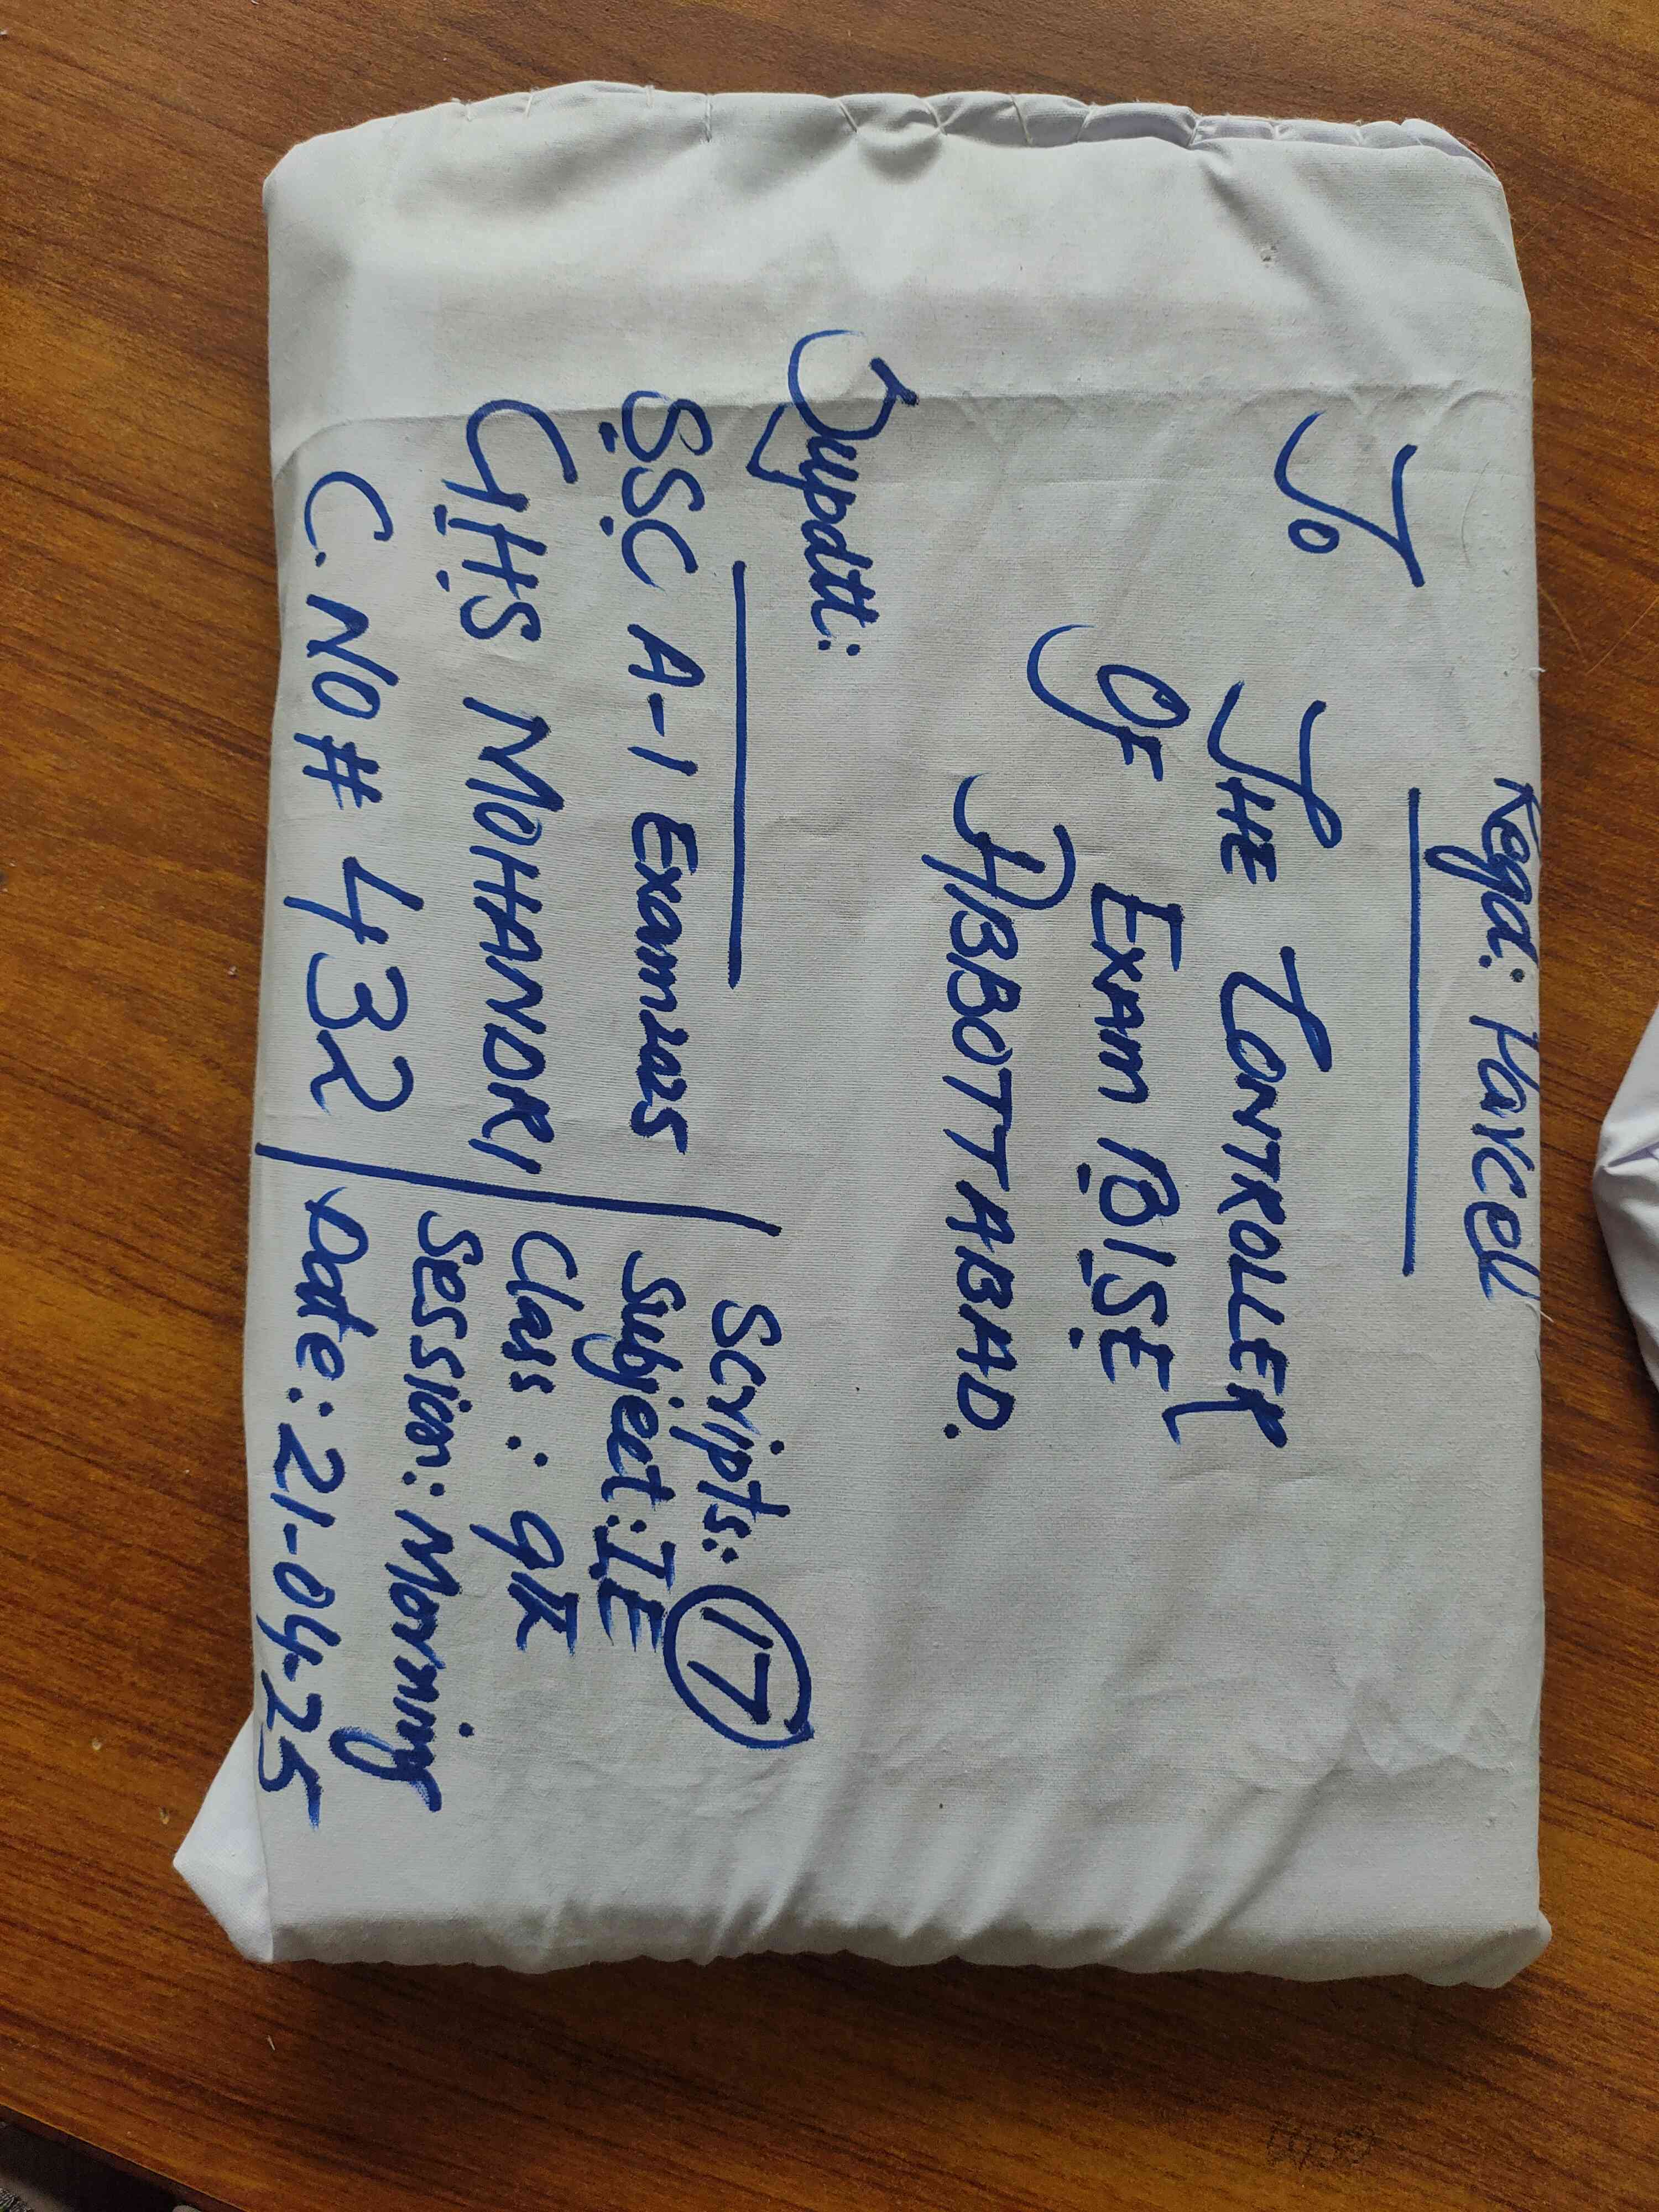 Regd: Parcel
To
THE CONTROLLER
OF EXAM B.I.S.E
ABBOTTABAD.
Supdtt:
S.S.C A-I Exam2025
G.H.S MOHANDRI
C.NO# 432
Scripts: 17
Subject: I.E
Class: 9th
Session: Morning
Date: 21-04-25